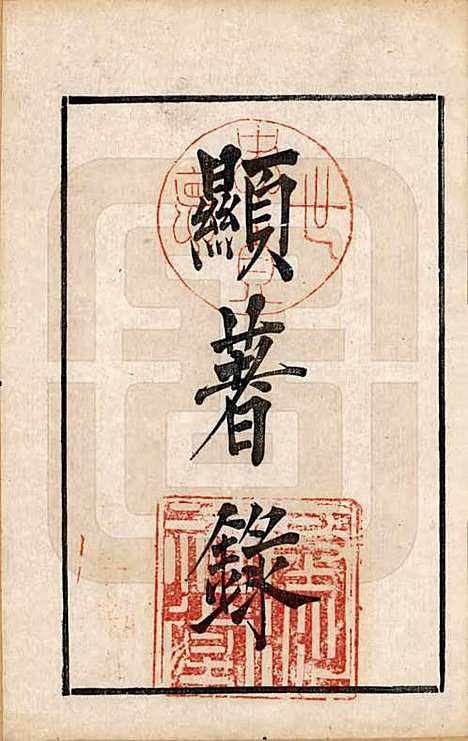 顯著錄